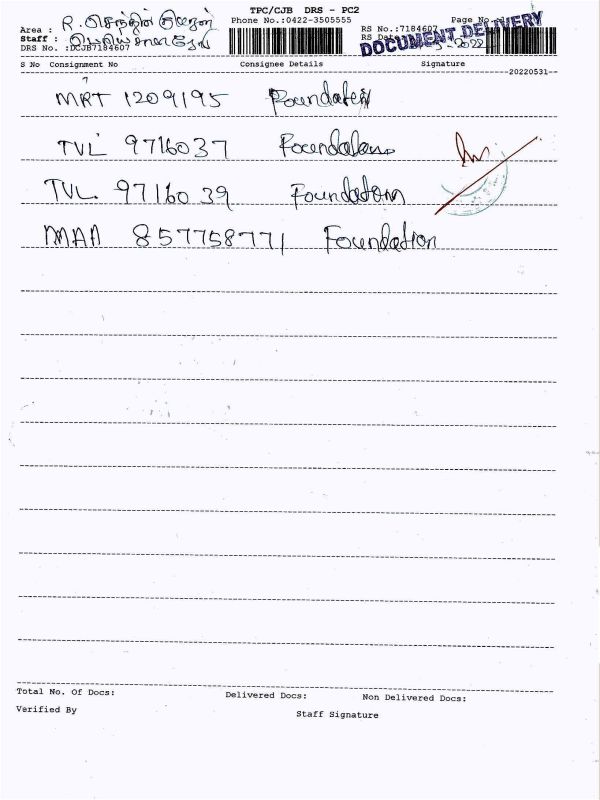 TPC/CJB DRS - PC2
Area : R.
Phone No.:0422-3505555
Page No.
Staff :
RS No.:7184607
RS Date
DRS No. :DCJB7184607
DOCUMENT DELIVERY
S No Consignment No Consignee Details Signature
20220531
MRT 1209195 Foundation
TVL 9716037 Foundation
TVL 9716039 Foundation
MAA 857758771 Foundation
Total No. Of Docs: Delivered Docs: Non Delivered Docs:
Verified By Staff Signature